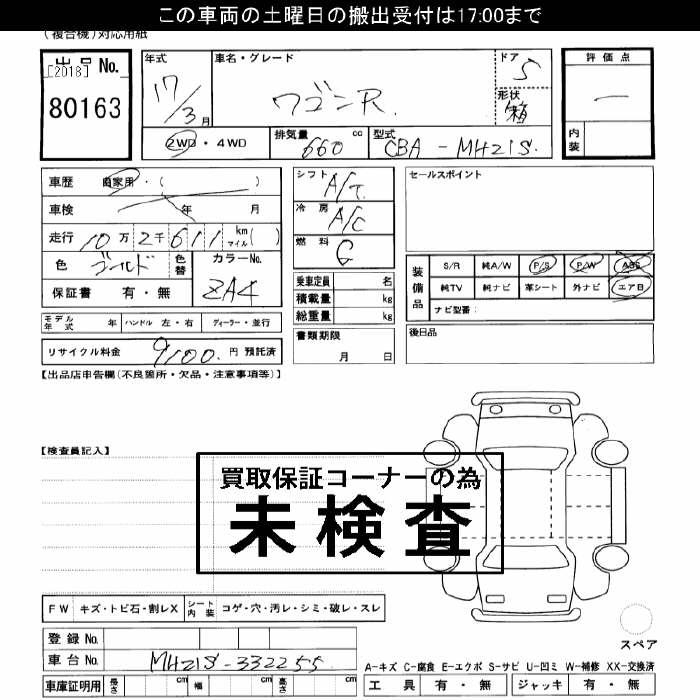 この車両の土曜日の搬出受付は17:00まで
(複合機)対応用紙
出品No.
[2018]
80163
年式
17/3月
車名・グレード
ワゴンR
ドア
5
形状
箱
評価点
内装
2WD・4WD
排気量
660 cc
型式
CBA-MH21S
車歴 自家用・( )
車検 年 月
走行 10万2千611 km マイル( )
色 ゴールド
色替
カラーNo.
ZA4
保証書 有・無
モデル年式 年 ハンドル 左・右 ディーラー・並行
リサイクル料金 9100 円 預託済
シフト A/T
冷房 A/C
燃料 G
乗車定員 名
積載量 kg
総重量 kg
書類期限
月 日
セールスポイント
装備品
S/R 純A/W P/S P/W ABS
純TV 純ナビ 革シート 外ナビ エアB
ナビ型番:
後日品
【出品店申告欄(不良箇所・欠品・注意事項等)】
【検査員記入】
買取保証コーナーの為
未検査
FW キズ・トビ石・割レX シート内装 コゲ・穴・汚レ・シミ・破レ・スレ
登録No.
車台No. MH21S-332255
車庫証明用 長さ cm 幅 cm 高さ cm
スペア
A-キズ C-腐食 E-エクボ S-サビ U-凹ミ W-補修 XX-交換済
工具 有・無 ジャッキ 有・無